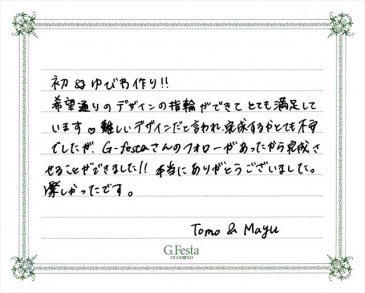 初めゆびわ作り!!
希望通りのデザインの指輪ができてとても満足して
います。難しいデザインだと言われ、完成するかとても不安
でしたが、G-festaさんのフォローがあったから完成さ
せることができました!!本当にありがとうございました。
楽しかったです。
Tomo & Mayu
G.Festa
DIAMOND